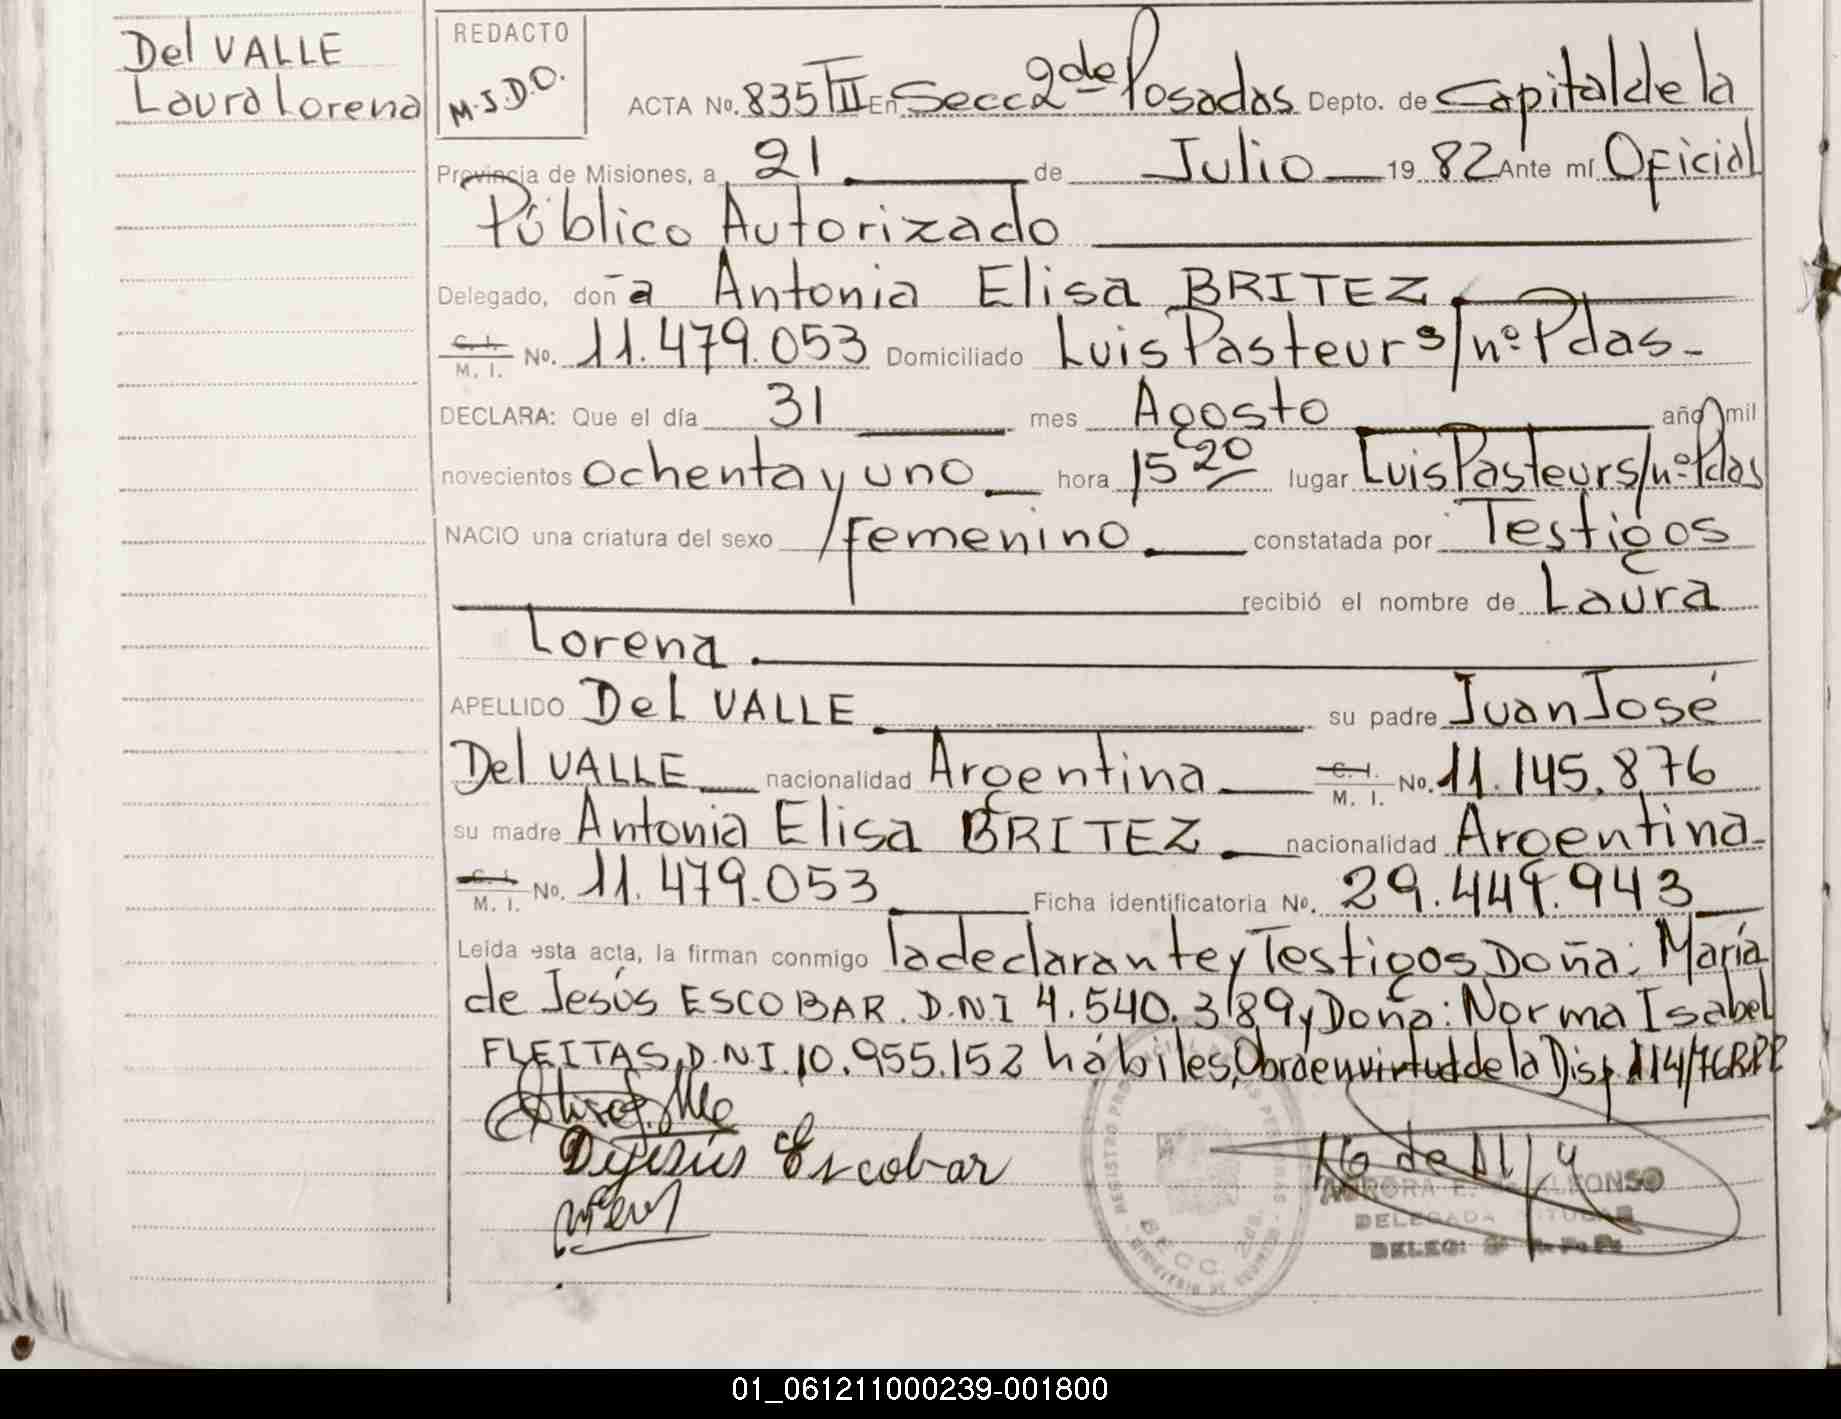 Del VALLE
Laura Lorena
REDACTO
M.J.D.O.
ACTA No. 835 TII En Secc 2da de Posadas Depto. de Capital de la
Provincia de Misiones, a 21 de Julio 1982 Ante mí Oficial
Público Autorizado
Delegado, doña Antonia Elisa BRITEZ
C. I.
M. I. No. 11.479.053 Domiciliado Luis Pasteur s/nº Pdas-
DECLARA: Que el día 31 mes Agosto año mil
novecientos ochenta y uno hora 15 20 lugar Luis Pasteur s/nº Pdas
NACIO una criatura del sexo femenino constatada por Testigos
recibió el nombre de Laura
Lorena
APELLIDO Del VALLE su padre Juan José
Del VALLE nacionalidad Argentina C. I. M. I. No. 11.145.876
su madre Antonia Elisa BRITEZ nacionalidad Argentina
C. I.
M. I. No. 11.479.053 Ficha identificatoria No. 29.449.943
Leída esta acta, la firman conmigo la declarante y Testigos Doña: María
de Jesús ESCOBAR. D.N.I 4.540.389 y Doña: Norma Isabel
FLEITAS, D.N.I. 10.955.152 hábiles, Obra en virtud de la Disp 114/76 RPP
D Jesús Escobar
DELEGADA TITULAR
DELEG:
01_061211000239-001800